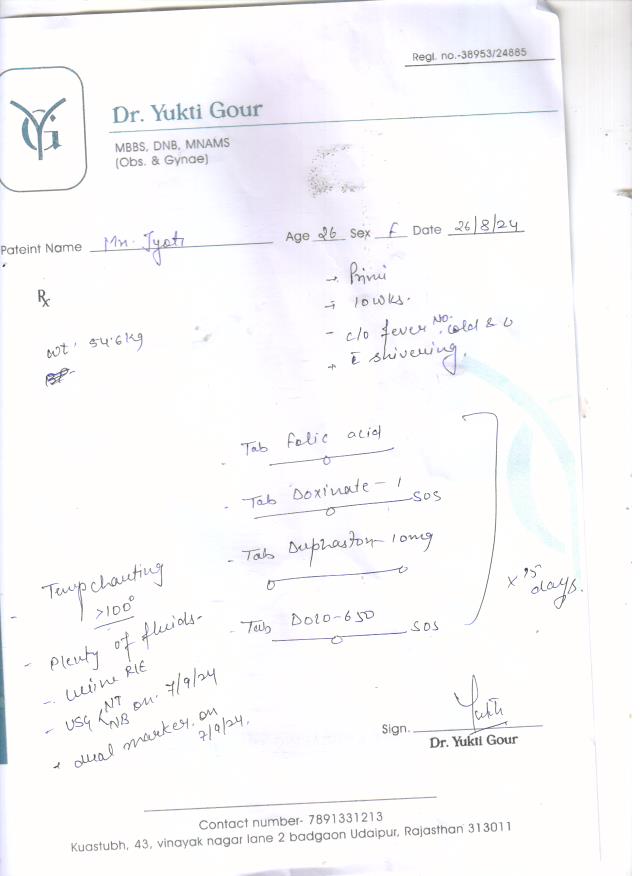 Regl. no.-38953/24885
Dr. Yukti Gour
MBBS, DNB, MNAMS
(Obs. & Gynae)
Pateint Name Mrs. Jyoti Age 26 Sex F Date 26/8/24
Rx
→ Primi
→ 10 wks.
wt. 54.6 kg
- c/o fever No. cold &
→ c̄ shivering.
BP-
- Tab folic acid
- Tab Doxinate - 1 SOS
- Tab Duphaston 10mg
- Tab Dolo-650 SOS
days.
- Temp chauting
>100°
- Plenty of fluids-
- Urine R/E
- USG < NT NB on 7/9/24
• dual marker on 7/9/24.
Yukti
Sign.
Dr. Yukti Gour
Contact number- 7891331213
Kuastubh, 43, vinayak nagar lane 2 badgaon Udaipur, Rajasthan 313011